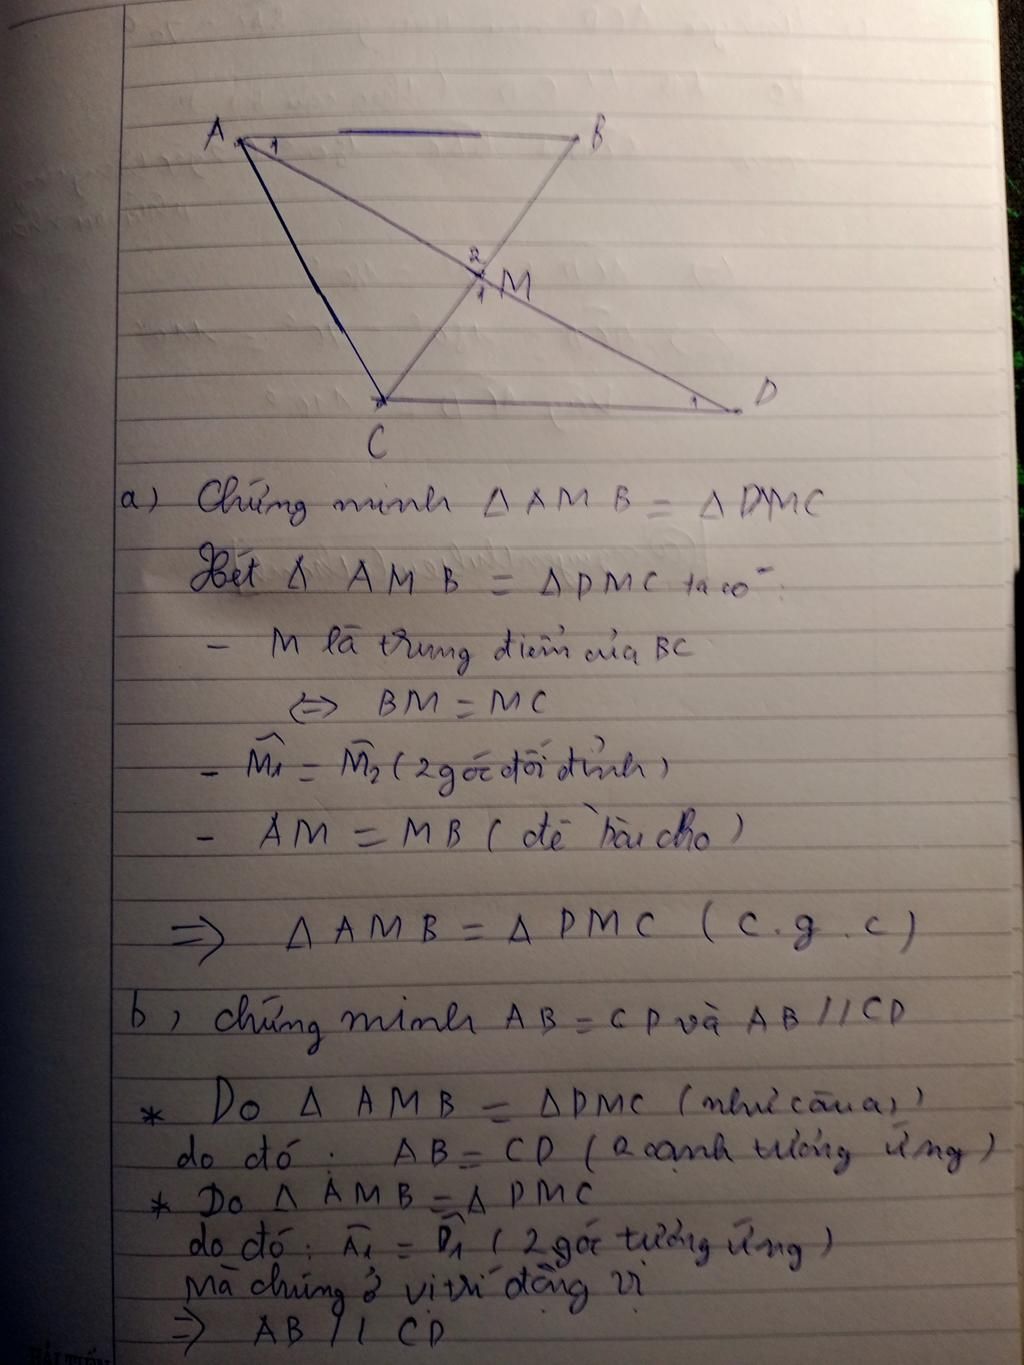 A
1
B
2
M
1
1
D
C
a) Chứng minh Δ AMB = Δ DMC
Xét Δ AMB = Δ DMC ta có :
- M là trung điểm của BC
⇔ BM = MC
- M̂1 = M̂2 ( 2 góc đối đỉnh )
- AM = MB ( đề bài cho )
⇒ Δ AMB = Δ DMC ( c.g.c )
b) chứng minh AB = CD và AB // CD
* Do Δ AMB = Δ DMC ( như câu a )
do đó : AB = CD ( 2 cạnh tương ứng )
* Do Δ AMB = Δ DMC
do đó : Â1 = D̂1 ( 2 góc tương ứng )
Mà chúng ở vị trí đồng vị
⇒ AB // CD